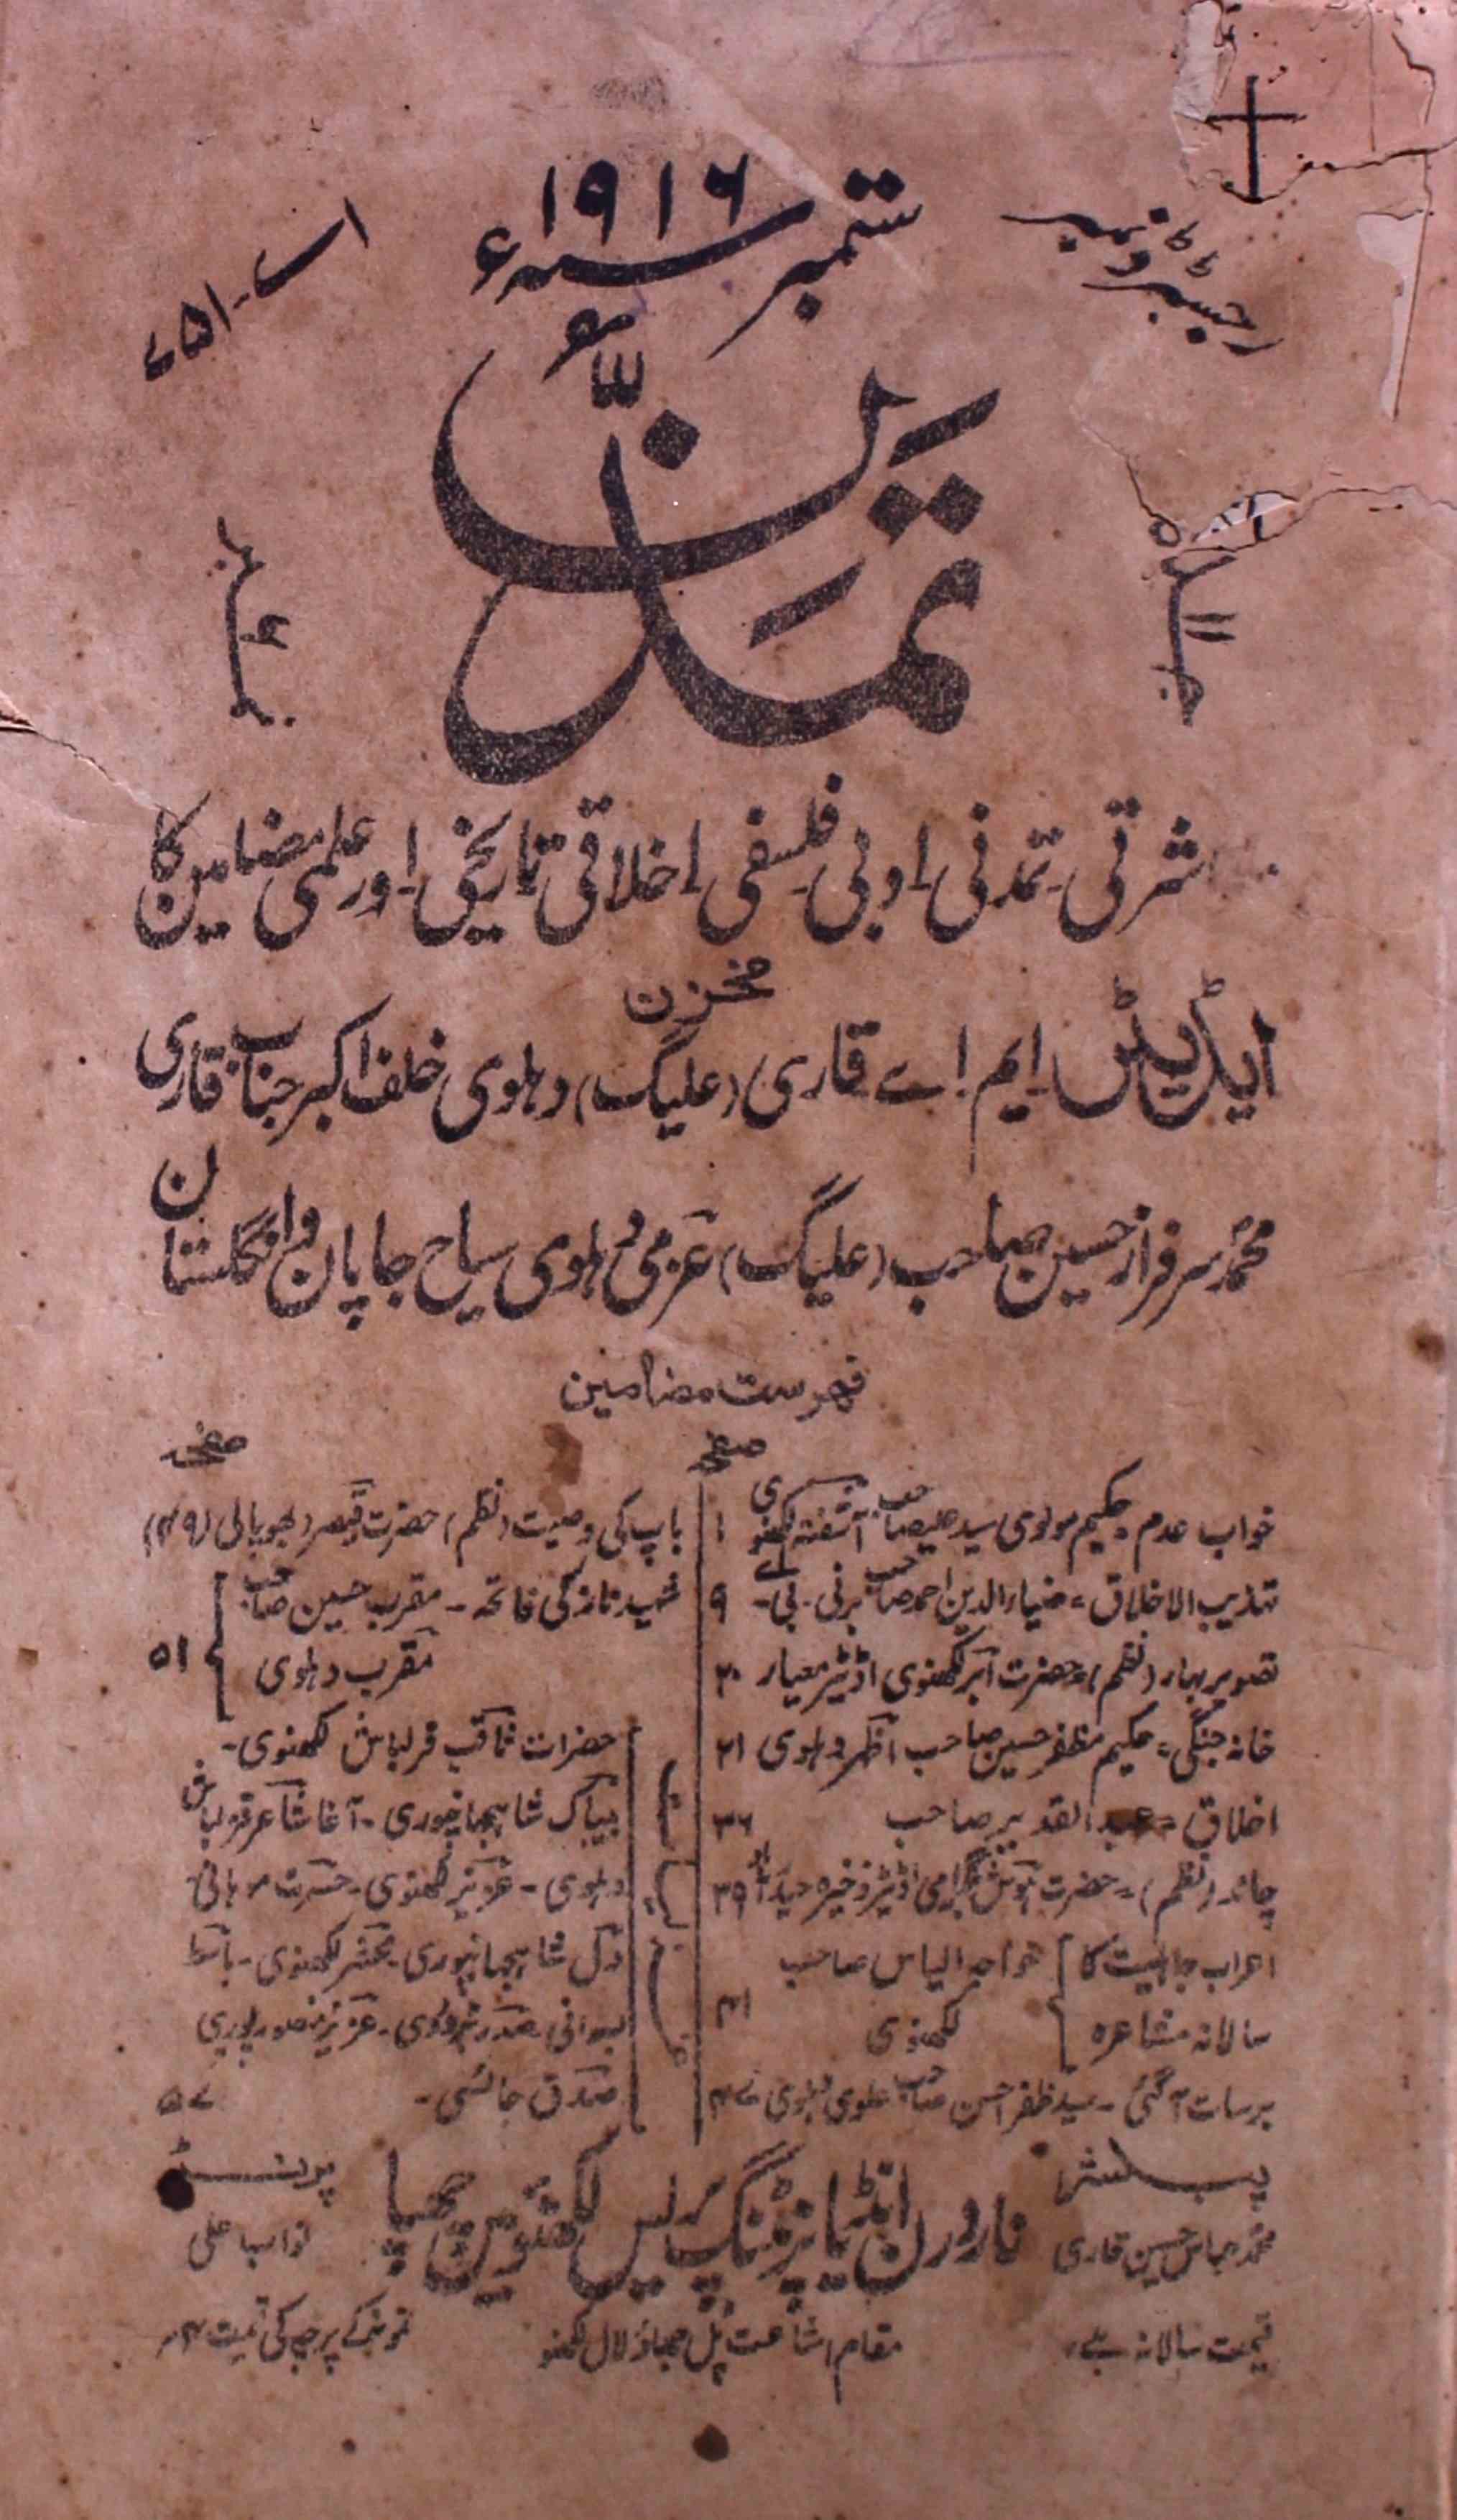 ستمبر ۱۹۱۶ سنہء
رجسٹرڈ نمبر
اے-۷۵۱
تمدّن
جلد ۱۱
نمبر ۶
شرقی۔ تمدنی۔ ادبی فلسفی۔ اخلاقی تاریخی۔ اور علمی مضامین کا
مخزن
ایڈیٹر۔ ایم۔ اے قاری (علیگ) دہلوی خلف اکبر جناب قاری
محمد سرفراز حسین صاحب (علیگ) عزمی دہلوی سیاح جاپان و انگلستان
فہرست مضامین
صفحہ
خواب عدم - حکیم مولوی سید صاحب آشفتہ لکھنوی ۱
تہذیب الاخلاق - ضیاء الدین احمد صاحب برنی۔ بی۔ اے ۹
تصویر بہار (نظم) - حضرت ابر لکھنوی اڈیٹر معیار ۲۰
خانہ جنگی - حکیم مظفر حسین صاحب اظہر دہلوی ۲۱
اخلاق - عبد القدیر صاحب ۳۶
چاند (نظم) - حضرت ہوش بلگرامی اڈیٹر ذخیرہ حیدرآباد ۳۹
اعراب جاہلیت کا خواجہ الیاس صاحب
سالانہ مشاعرہ لکھنوی ۴۱
برسات آگئی - سید ظفر احسن صاحب علوی دہلوی ۴۷
صفحہ
باپ کی وصیت (نظم) حضرت قیصر (بھوپالی) (۴۹)
شہید ناز کی فاتحہ - مقرب حسین صاحب
مقرب دہلوی ۵۱
حضرات ثاقب قزلباش لکھنوی -
بیباک شاہجہانپوری - آغا شاعر قزلباش
دہلوی - عزیز لکھنوی - حسرت موہانی
دل شاہجہانپوری - محشر لکھنوی - باسط
بسوانی - عزیز منصورپوری
صدق جائسی - ۵۷
پبلشر
محمد عباس حسین قاری
نارورن انڈیا پرنٹنگ پریس لکھنؤ میں چھپا
پرنٹر
نواب علی
قیمت سالانہ
مقام اشاعت پل جھاؤ لال لکھنؤ
نمونہ کے پرچہ کی قیمت ۴؍